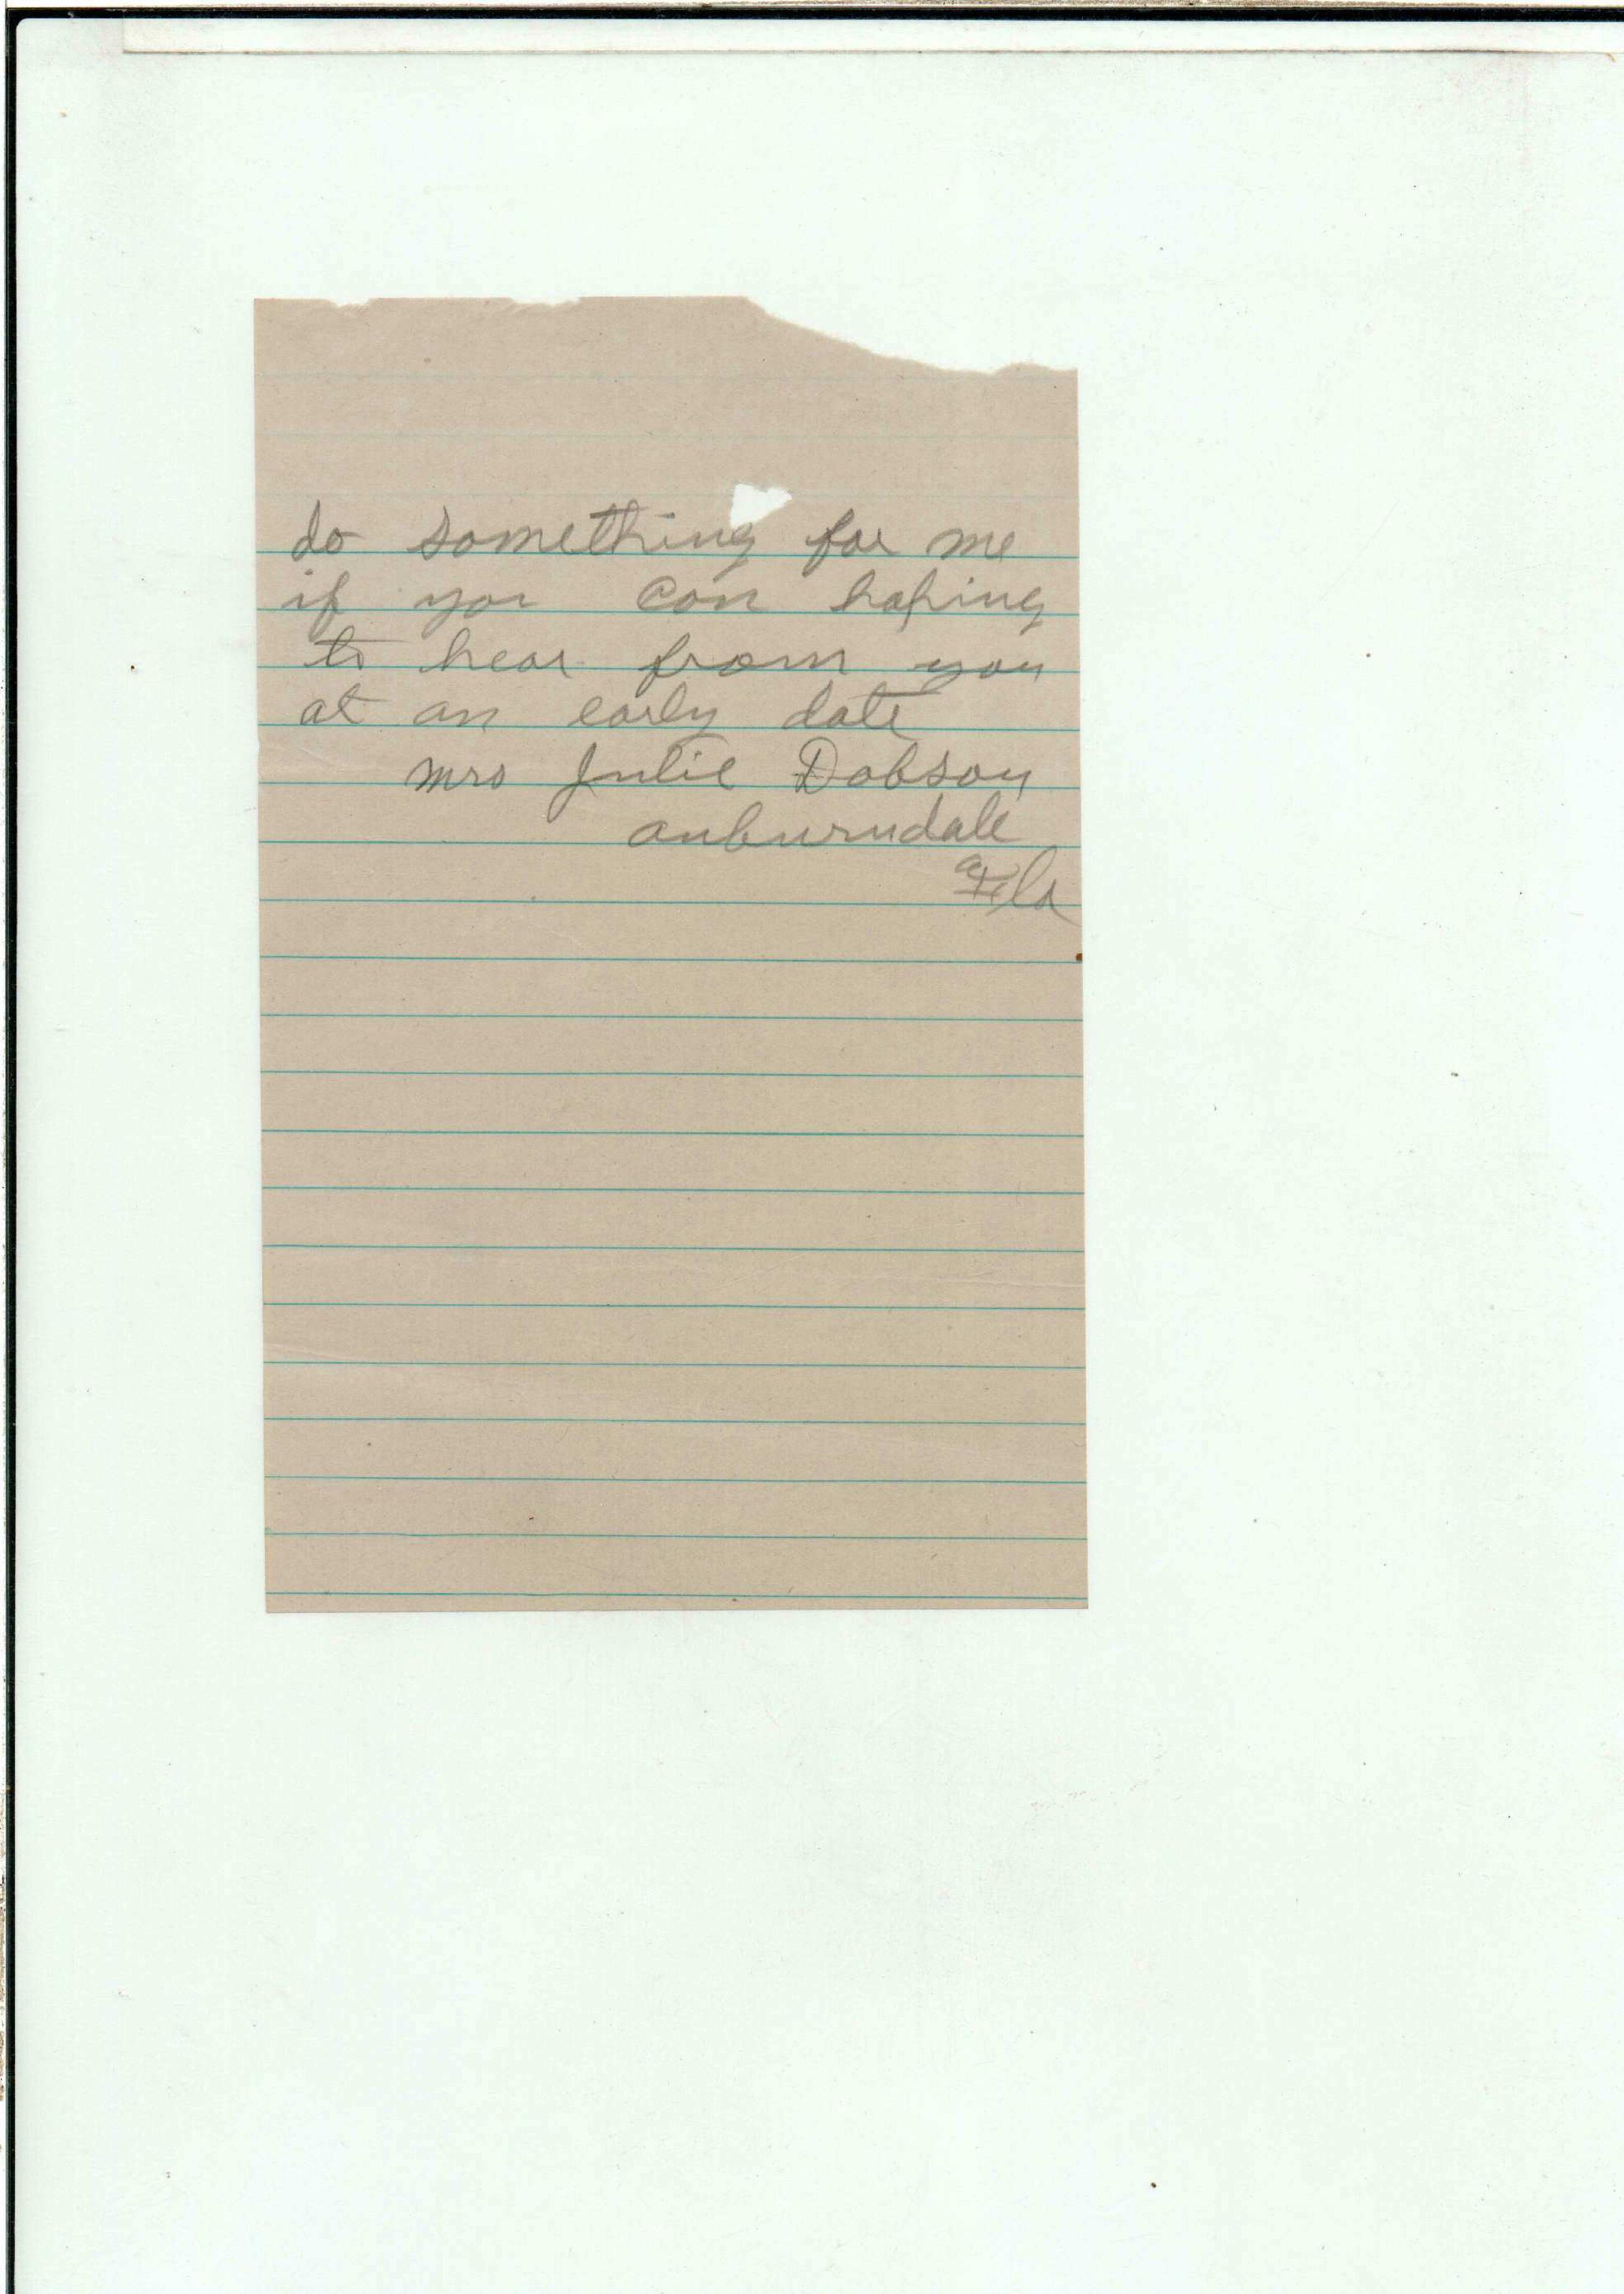 do something for me
if you can hoping
to hear from you
at an early date
mrs Julie Dobson
auburndale
Fla